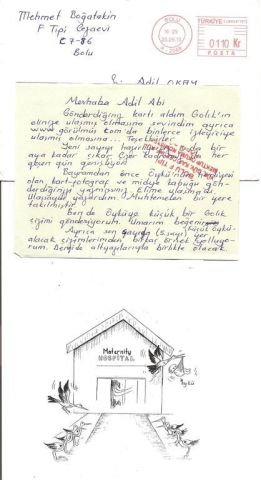 Mehmet Boğatekin
F Tipi Cezaevi
C 7-86
Bolu
BOLU
TÜRKİYE CUMHURİYETİ
0110 Kr
POSTA
Adil OKAY
Merhaba Adil Abi
Gönderdiğiniz kartı aldım Golik'in
eline ulaşmış olmasına sevindim ayrıca
www.görülmüş com'da binlerce izleyiciye
ulaşmış olmasına... Teşekkürler
Yeni sayıya
aya kadar çıkar
akşam gün
Bayramdan önce Öykü'nün hediyesi
olan kart-fotoğraf ve midye kabuğu gön-
derdiğinizi yazmışsınız. Elime ulaşmadı
ulaşsaydı yazardım. Muhtemelen bir yere
takılmıştır.
Ben de Öykü'ye küçük bir Golik
çizimi gönderiyorum. Umarım beğenir
Ayrıca son sayıda (5. sayı) yer
alacak çizimlerimden birkaç örnek yolluyo-
rum. Bende altyapılarıyla birlikte olacak.
Maternity
HOSPITAL
Öykü